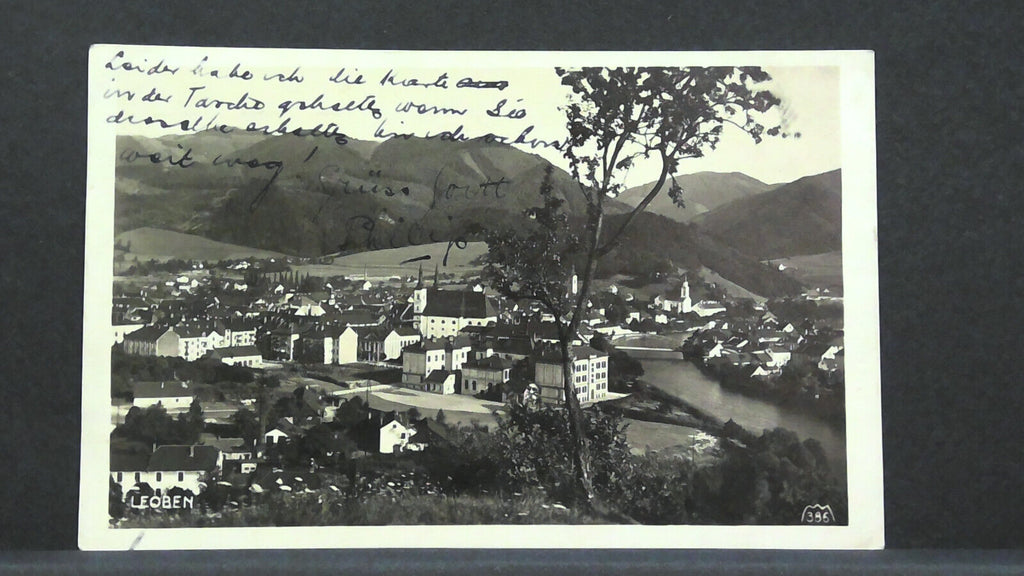 Leider habe ich die Karte aus
in der Tasche gehabt, wenn Sie
dieselbe erhalten bin ich schon
weit weg!
Grüss Gott
Phillip
LEOBEN
396